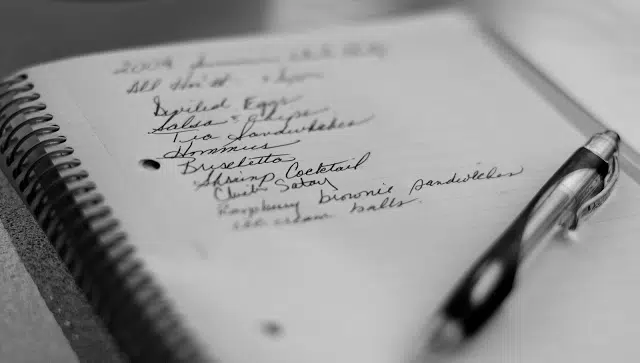 2009 Summer
All
Deviled Eggs
Salsa & Chips
Tea Sandwhiches
Hommus
Bruschetta
Shrimp Cocktail
Chicken Satay
Raspberry brownie sandwiches
ice cream balls